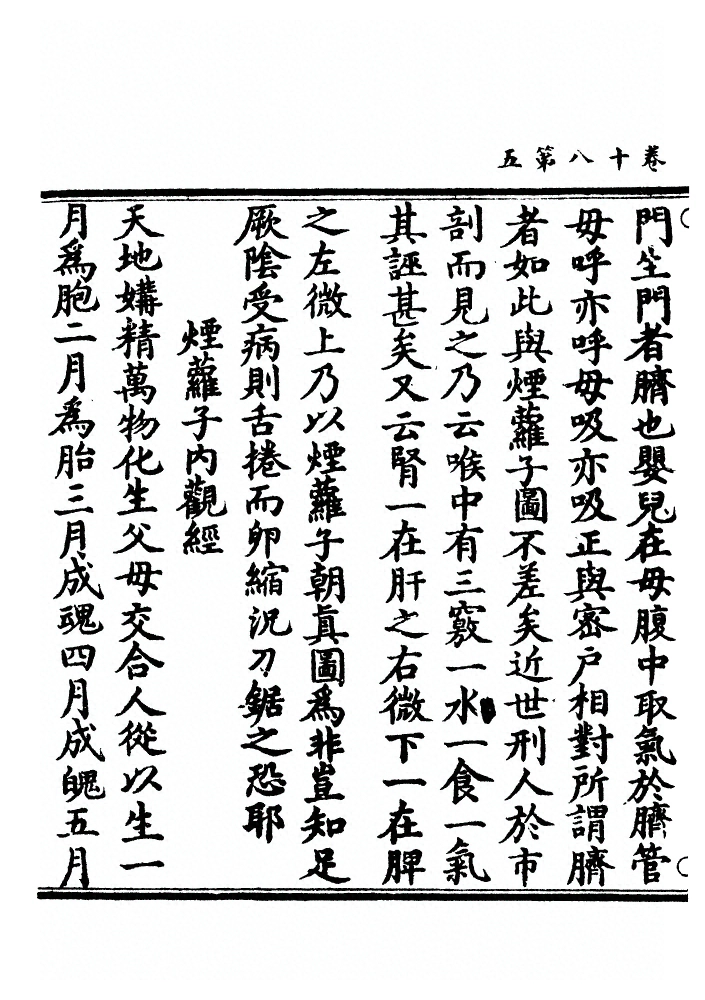 卷十八第五
門生門者臍也嬰兒在母腹中取氣於臍管
母呼亦呼母吸亦吸正與密户相對所謂臍
者如此與煙蘿子圖不差矣近世刑人於市
剖而見之乃云喉中有三竅一水一食一氣
其誣甚矣又云腎一在肝之右微下一在脾
之左微上乃以煙蘿子朝真圖爲非豈知足
厥陰受病則舌捲而卵縮況刀鋸之恐耶
煙蘿子內觀經
天地媾精萬物化生父母交合人從以生一
月爲胞二月爲胎三月成魂四月成魄五月